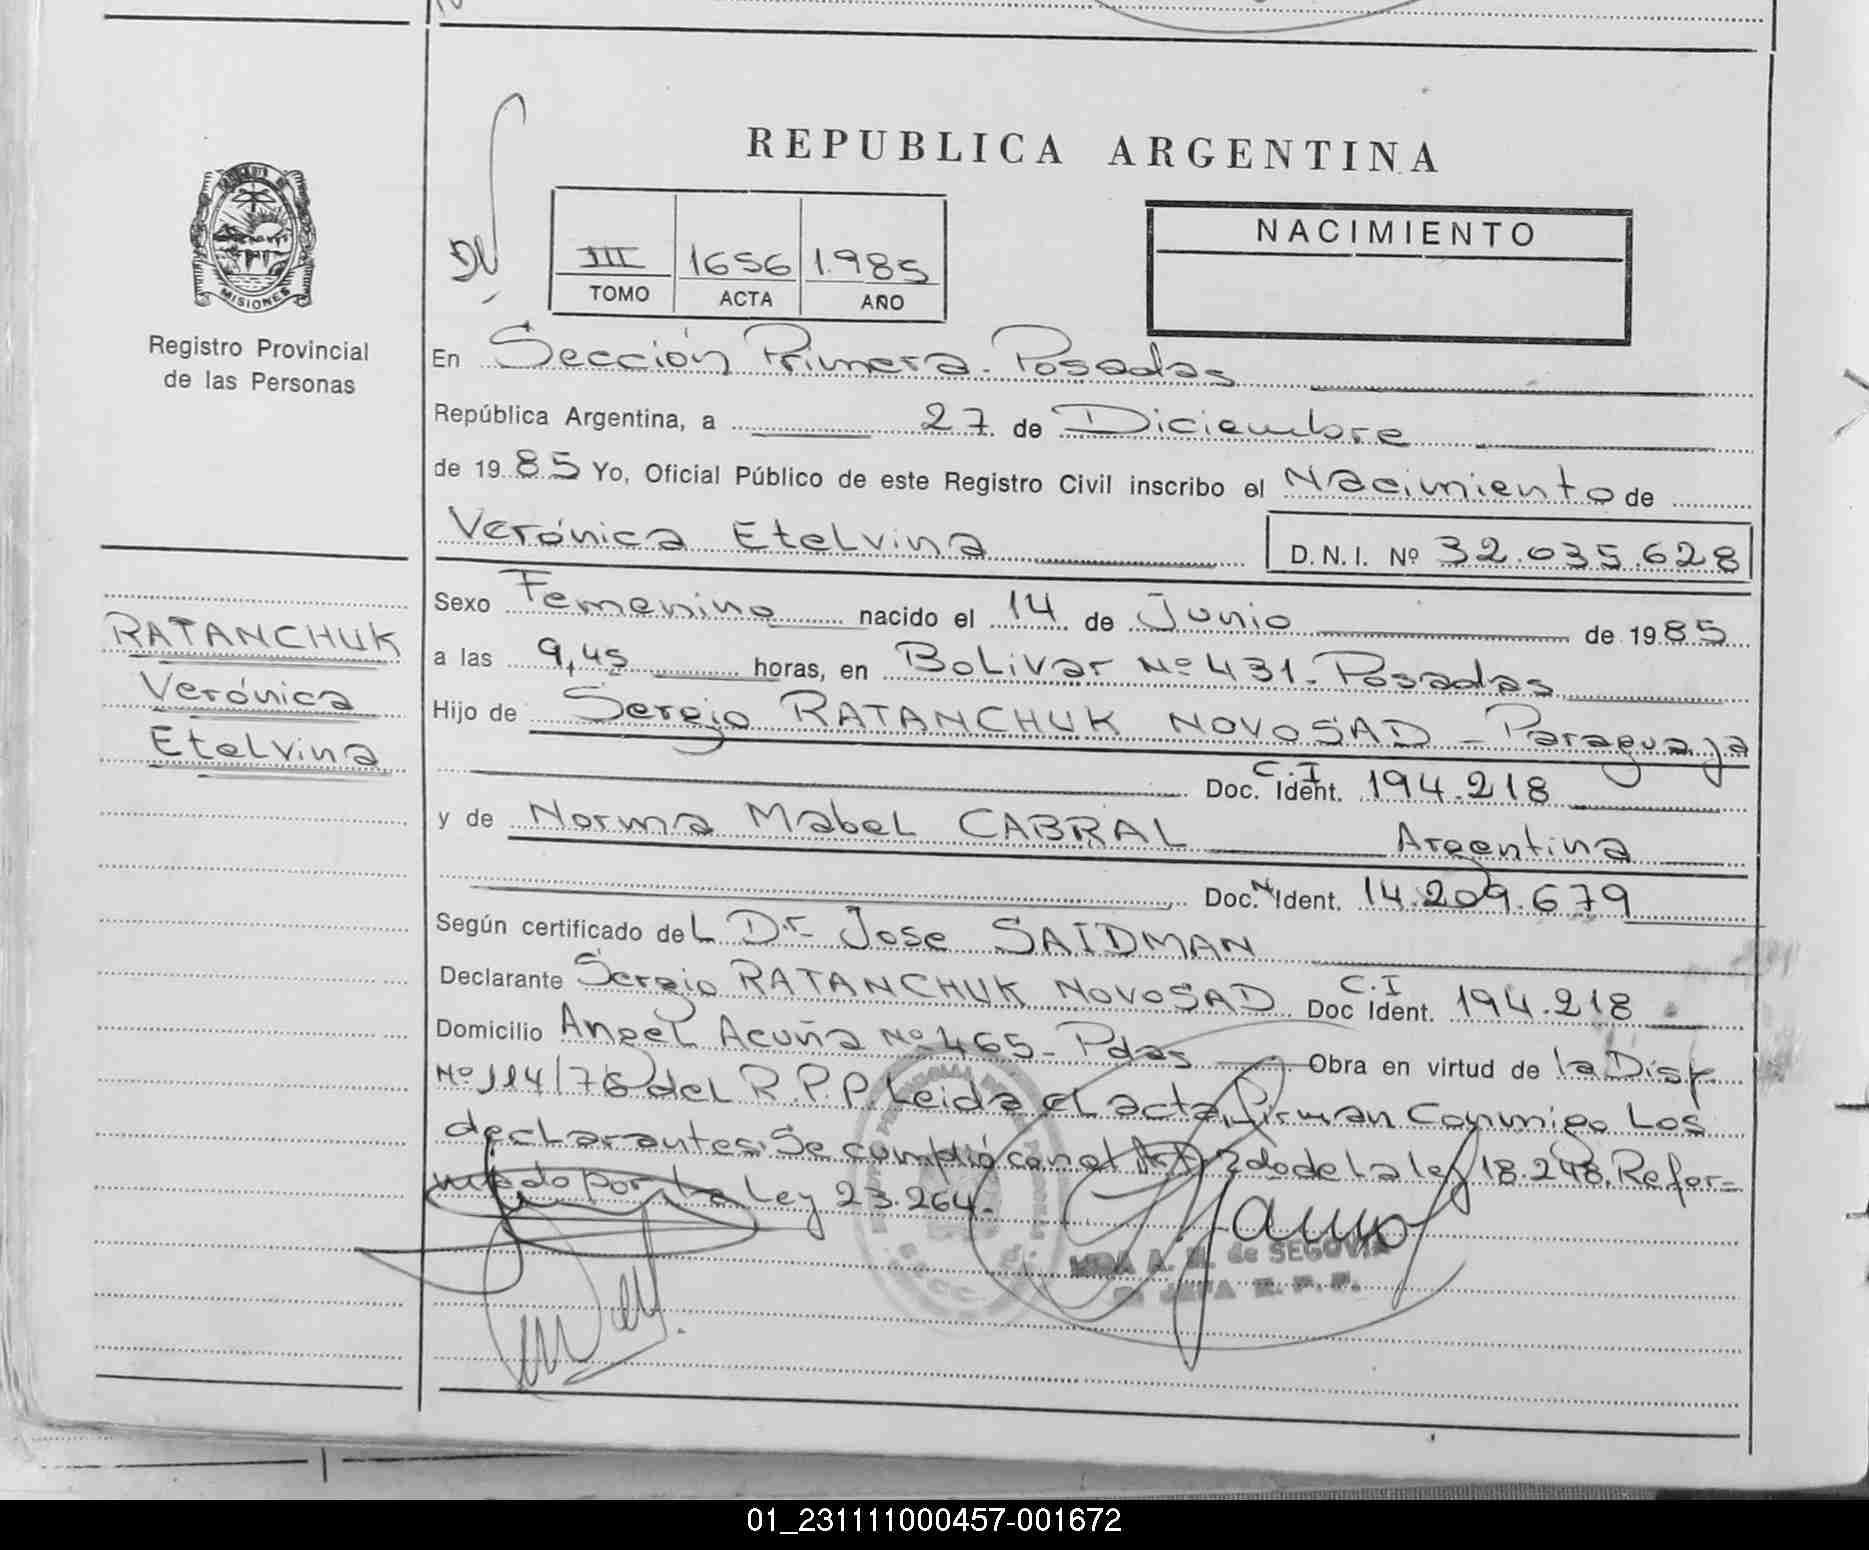 REPUBLICA ARGENTINA
MISIONES
Registro Provincial
de las Personas
III 1656 1.985
TOMO ACTA AÑO
NACIMIENTO
En Sección Primera - Posadas
República Argentina, a 27 de Diciembre
de 1985 Yo, Oficial Público de este Registro Civil inscribo el Nacimiento de
Verónica Etelvina D.N.I. Nº 32.035.628
Sexo Femenino nacido el 14 de Junio de 1985
a las 9,45 horas, en Bolivar Nº 431 - Posadas
Hijo de Sergio RATANCHUK NOVOSAD - Paraguaja
C.I
Doc. Ident. 194.218
y de Norma Mabel CABRAL Argentina
Doc. N Ident. 14.209.679
Según certificado del Dr. Jose SAIDMAN
Declarante Sergio RATANCHUK NOVOSAD C.I Doc Ident. 194.218
Domicilio Angel Acuña Nº 465 - Pdas Obra en virtud de la Disp.
Nº 114/76 del R.P.P. Leida el acta, firman conmigo los
declarantes. Se cumplió con el Art 2do de la ley 18.248, Refor=
mado por la Ley 23.264.-
A. M. de SEGOVIA
JEFA R. P. P.
RATANCHUK
Verónica
Etelvina
01_231111000457-001672